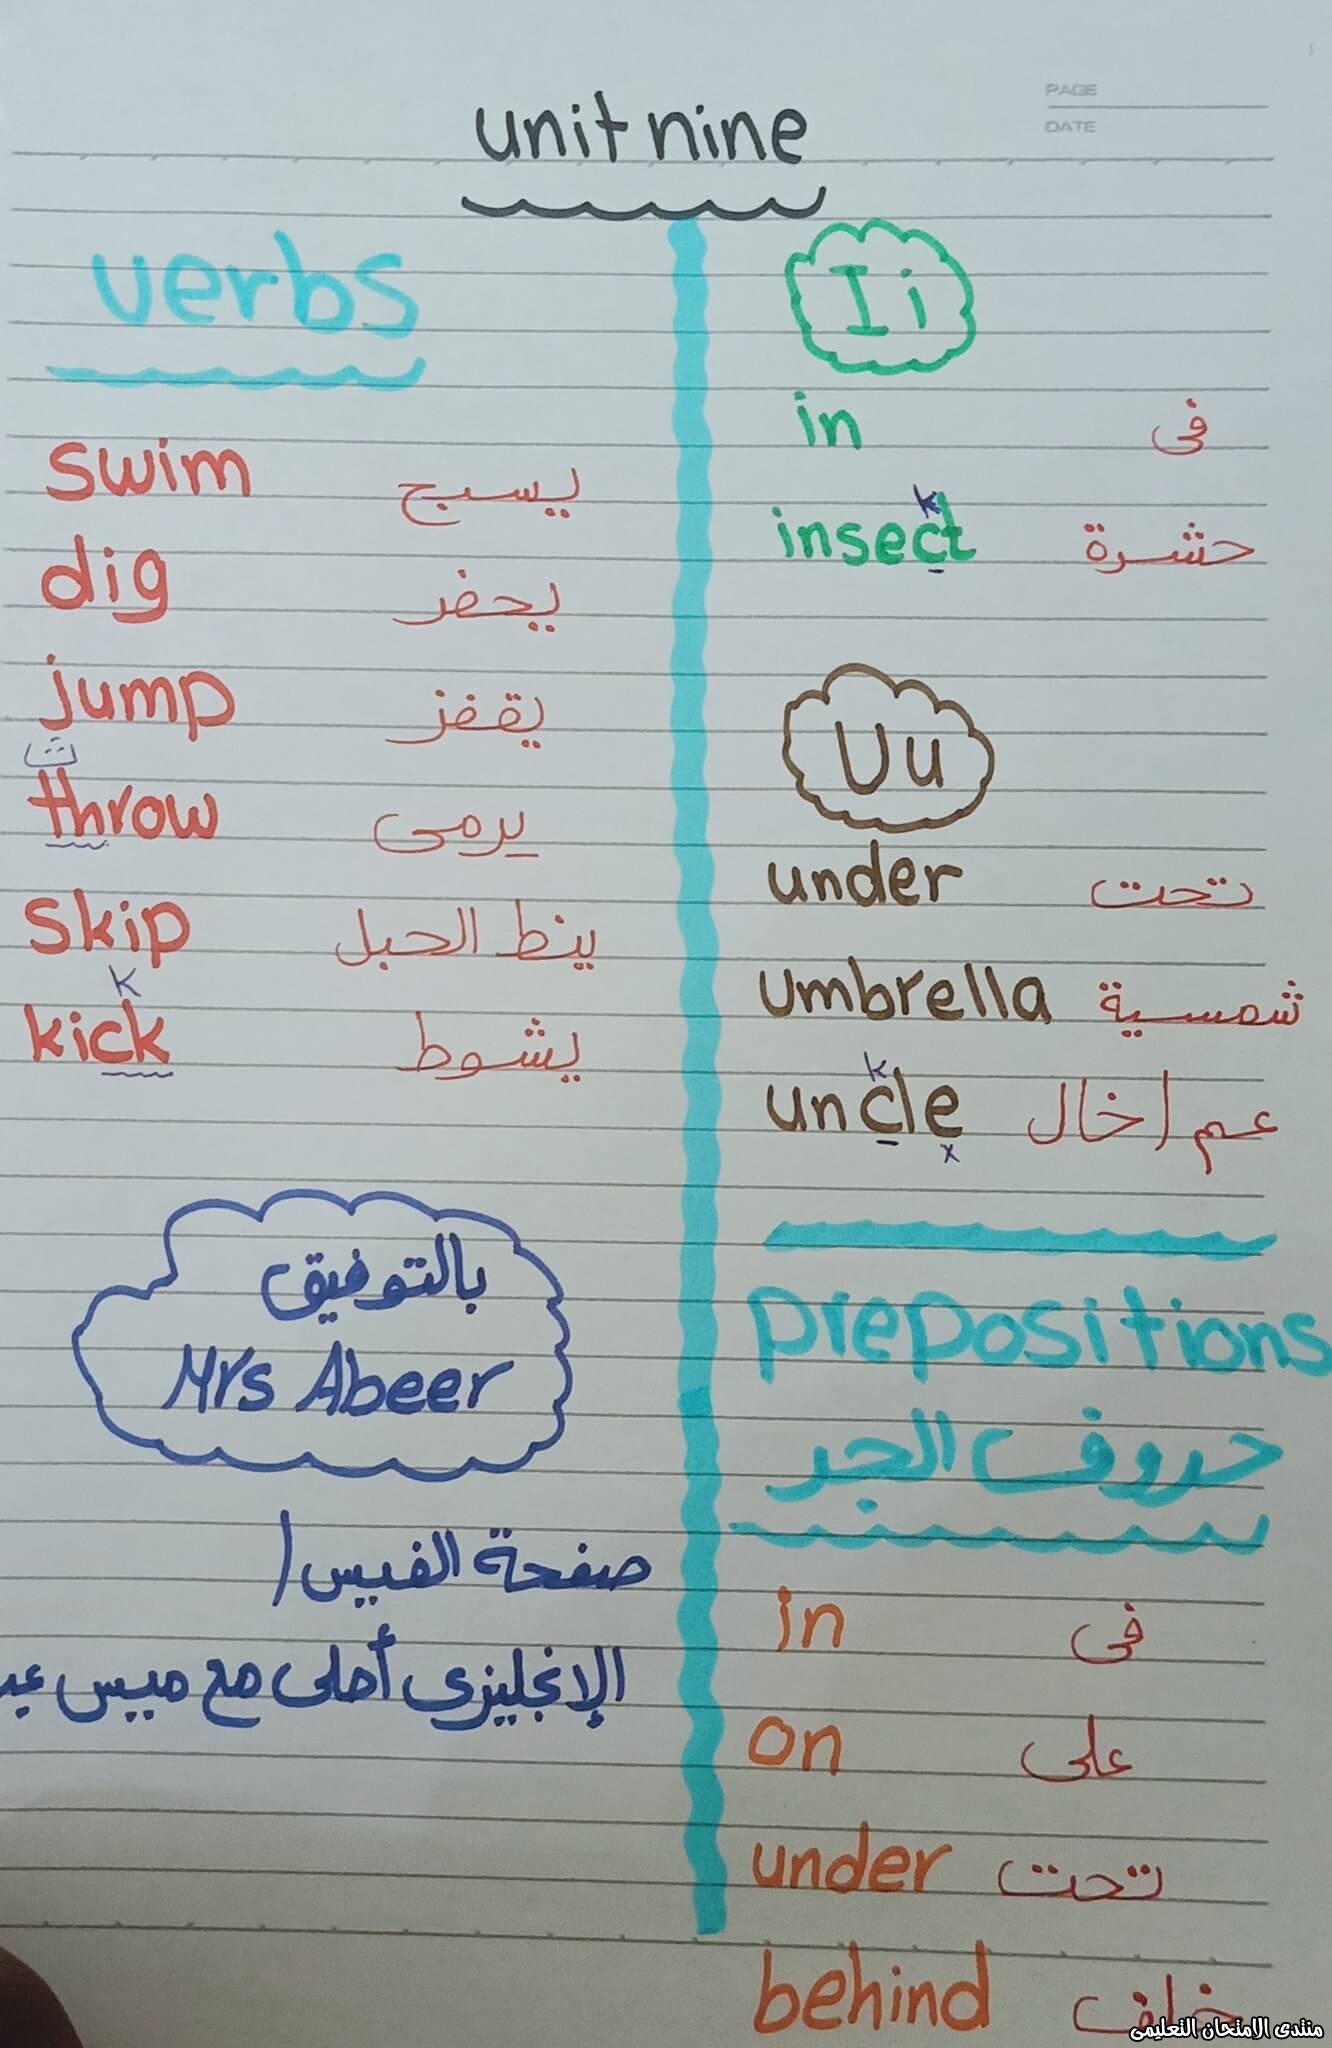 PAGE
DATE
unit nine
verbs
swim يسبح
dig يحفر
jump يقفز
ث
throw يرمى
skip ينط الحبل
k
kick يشوط
بالتوفيق
Mrs Abeer
صفحة الفيس/
الإنجليزى أحلى مع ميس
I i
in فى
k
insect حشرة
U u
under تحت
umbrella شمسية
k
uncle عم / خال
x
prepositions
حروف الجر
in فى
on على
under تحت
behind خلف
منتدى الامتحان التعليمى